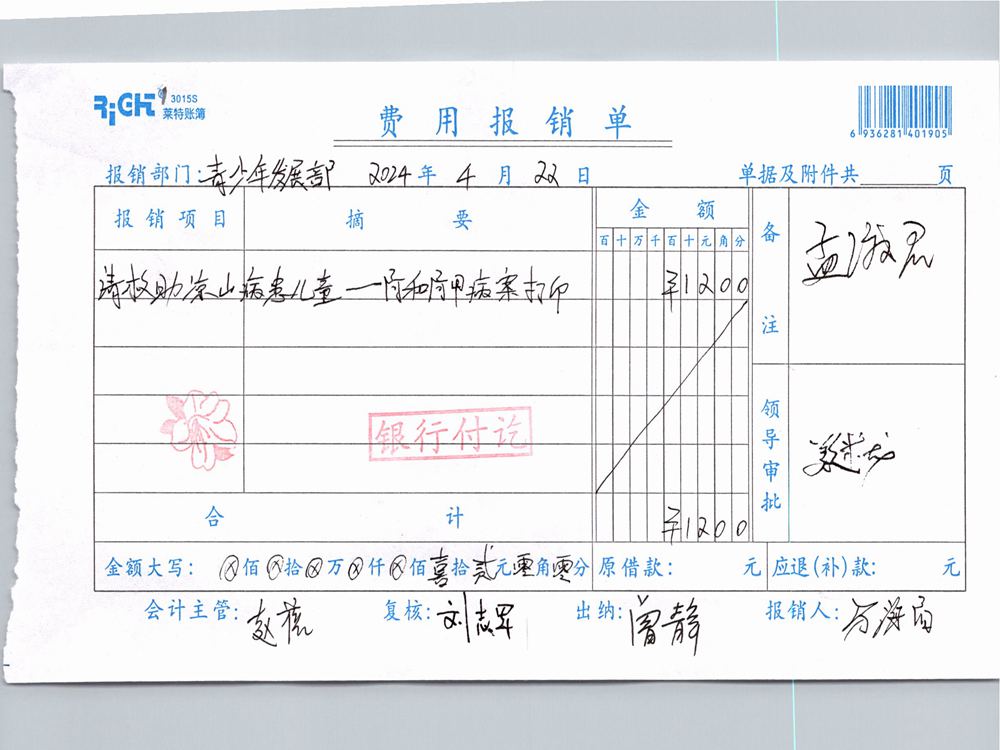 RiGHT 3015S
莱特账簿
费用报销单
6 936281 401905
报销部门:青少年发展部 2024年4月22日 单据及附件共 页
报销项目 摘要 金额 备注
百十万千百十元角分
请救助凉山病患儿童—阿和阿甲病案打印 ¥1200
银行付讫
领导审批
合计 ¥1200
金额大写: ⊗佰⊗拾⊗万⊗仟⊗佰壹拾贰元零角零分 原借款: 元 应退(补)款: 元
会计主管: 复核: 刘志军 出纳: 曾静 报销人: